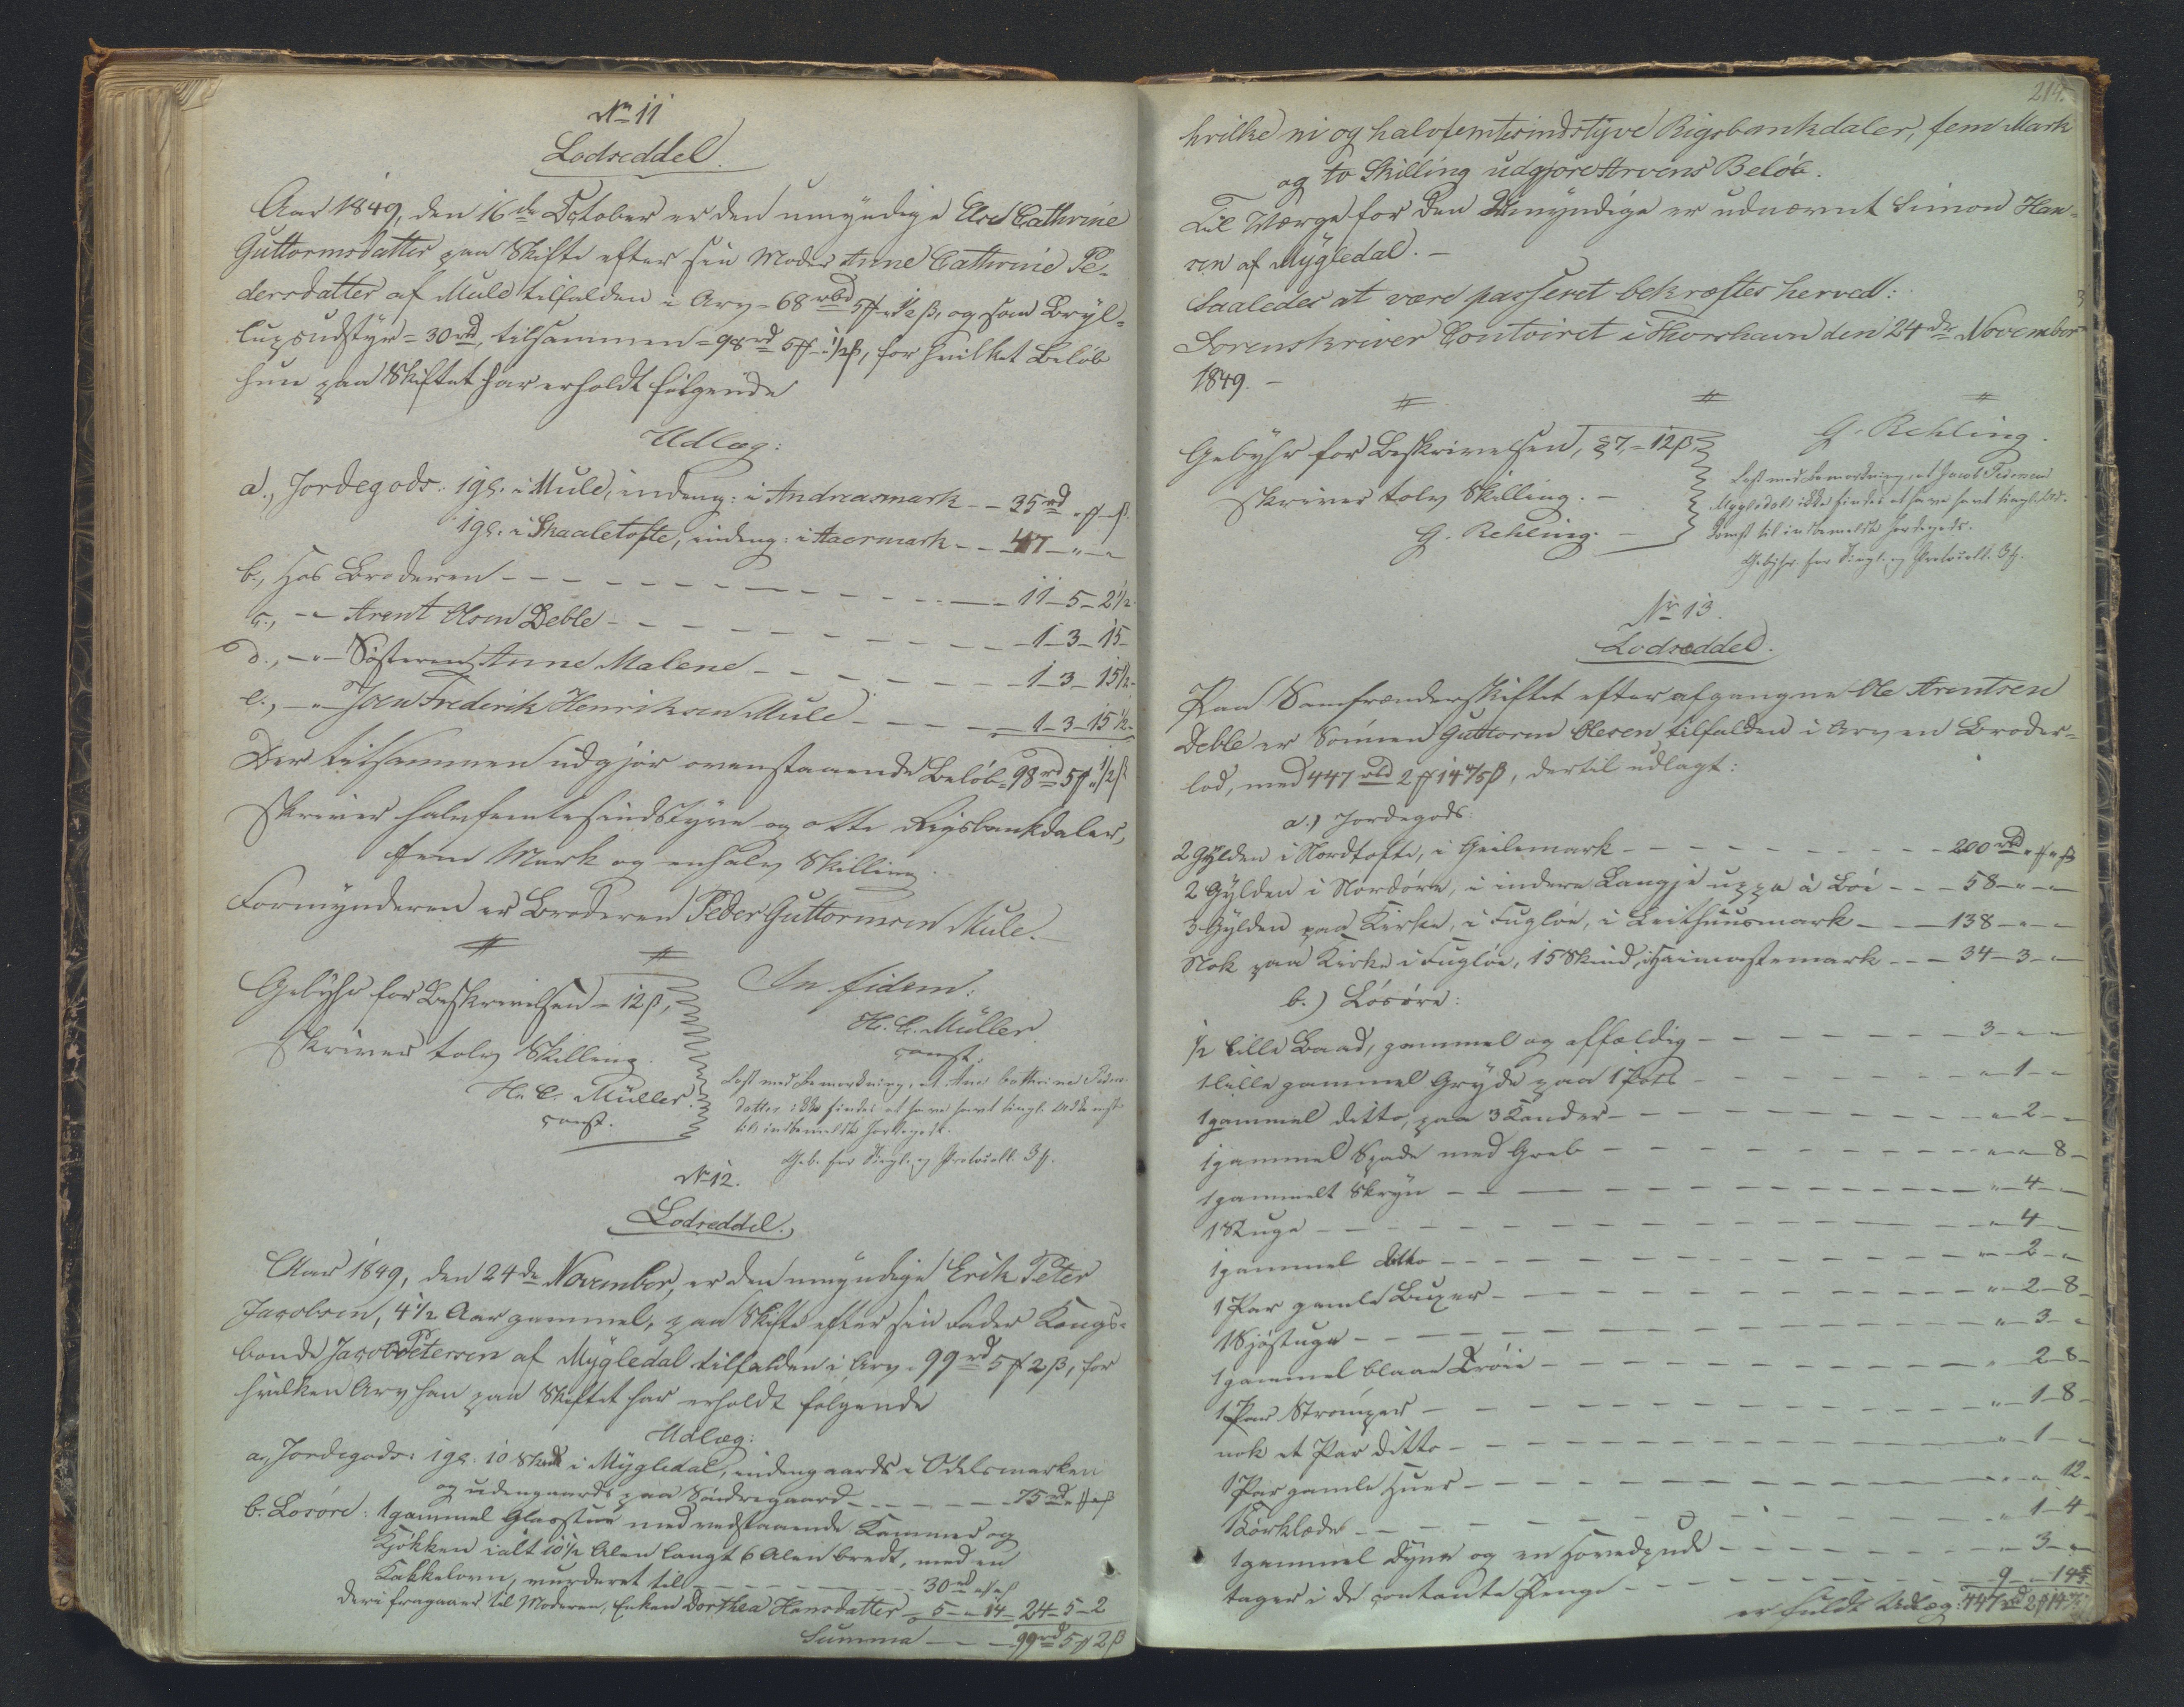 No 11
Lodseddel.
Aar 1849, den 16de October er den umyndige Else Cathrine
Guttormsdatter paa Skifte efter sin Moder Anne Cathrine Pe-
dersdatter af Mule tilfalden i Arv = 68 rbd 5 ff " ½ ß, og som Bryl-
lupsudstyr = 30 rd, tilsammen = 98 rd 5 ff " ½ ß, for hvilket Beløb
hun paa Skiftet har erholdt følgende
Udlæg:
a., Jordegods: 1 gl. i Mule, indeng: i Andreasmark - - 35 rd " ff " ß.
1 gl. i Skaaletofte, indeng: i Aaermark - - 47 - " - "
b., Hos Broderen - - - 11 - 5 - 2½.
c., - " - Arent Olsen Deble - - - 1 - 3 - 15 -
d., - " - Søsteren Anne Malene - - - 1 - 3 - 15½.
e., - " - Joen Frederik Henriksen Mule - - - 1 - 3 - 15½.
Der tilsammen udgjør ovenstaaende Beløb = 98 rd 5 ff " ½ ß
skriver halvfemtesindstyve og otte Rigsbankdaler,
fem Mark og en halv Skilling.
Formynderen er Broderen Peder Guttormsen Mule.
Gebyhr for Beskrivelsen = 12 ß,
skriver tolv Skilling.
H. C. Müller.
const.
In fidem:
H. C. Müller
const.
Læst med Bemærkning, at Anne Cathrine Peders-
datter ikke findes at have havt tinglæst Adkomst
til indbemeldte Jordegods.
Geb. for Tingl. og Protocoll. 3 ff.
No 12.
Lodseddel.
Aar 1849, den 24de November, er den umyndige Erik Peter
Jacobsen, 4½ Aar gammel, paa Skifte efter sin Fader Kongs-
bonde Jacob Petersen af Mygledal tilfalden i Arv = 99 rd 5 ff 2 ß, for
hvilken Arv han paa Skiftet har erholdt følgende
Udlæg:
a., Jordegods: 1 gl. 10 Skind i Mygledal, indengaards i Odelsmarken
og udengaards paa Søndregaard - - - 75 rd " ff " ß
b. Løsøre: 1 gammel Glasstue med vedstaaende Kammer og
Kjøkken ialt 10½ Alen langt 6 Alen bredt, med en
Kakkelovn, vurderet til - - - 30 rd " ff " ß
deri fragaaer til Moderen, Enken Dorthea Hansdatter - 5 - " - 14 - 24 - 5 - 2
Summa - - - 99 rd 5 ff 2 ß
214.
hvilke ni og halvfemtesindstyve Rigsbankdaler, fem Mark
og to Skilling udgjøre Arvens Beløb.
Til Værge for den Umyndige er udnævnt Simon Han-
sen af Mygledal. -
Saaledes at være passeret bekræftes herved:
Sorenskriver Contoiret i Thorshavn den 24de November
1849. -
G. Rehling.
Gebyhr for Beskrivelsen, § 7, = 12 ß,
skriver tolv Skilling. -
G. Rehling. -
Læst med Bemærkning, at Jacob Petersen
Mygledal ikke findes at have havt tingl. Ad-
komst til indbemeldte Jordegods.
Gebyhr for Tingl. og Protocoll. 3 ff.
No 13.
Lodseddel.
Paa Samfrænderskiftet efter afgangne Ole Arentsen
Deble er Sønnen Guttorm Olesen tilfalden i Arv en Broder-
lod, med 447 rbd 2 ff 14 4/5 ß, dertil udlagt:
a.) Jordegods:
2 Gylden i Nordtofte, i Geilemark - - - 200 rbd " ff " ß
2 Gylden i Nordøre, i indere Langje uppe à Boi - - - 58 - " - "
3 Gylden paa Kirke, i Fugløe, i Leithuusmark - - - 138 - " - "
Nok paa Kirke i Fugløe, 15 Skind, i Haimastemark - - - 34 - 3 - "
b.) Løsøre:
½ lille Baad, gammel og affældig - - - 3 - " - "
1 lille gammel Gryde paa 1 Pott - - - " - 1 - "
1 gammel ditto, paa 3 Kander - - - " - 2 - "
1 gammel Spade med Greb - - - " - " - 8 -
1 gammelt Skryn - - - " - 4 - "
1 Stuge - - - " - 4 - "
1 gammel ditto - - - " - 2 - "
1 Par gamle Buxer - - - " - 2 - 8 -
1 Sjøstuge - - - " - 3 - "
1 gammel blaae Trøie - - - " 2 - 8 -
1 Par Strømper - - - " - 1 - 8 -
nok et Par ditto - - - " - 1 - "
1 Par gamle Huer - - - " - " - 12 -
1 Tørklæde - - - " - 1 - 4 -
1 gammel Dyne og en Hovedpude - - - " - 3 - "
tages i de contante Penge - - - 9 - " - 14 4/5
er fuldt Udlæg: 447 rd 2 ff 14 4/5